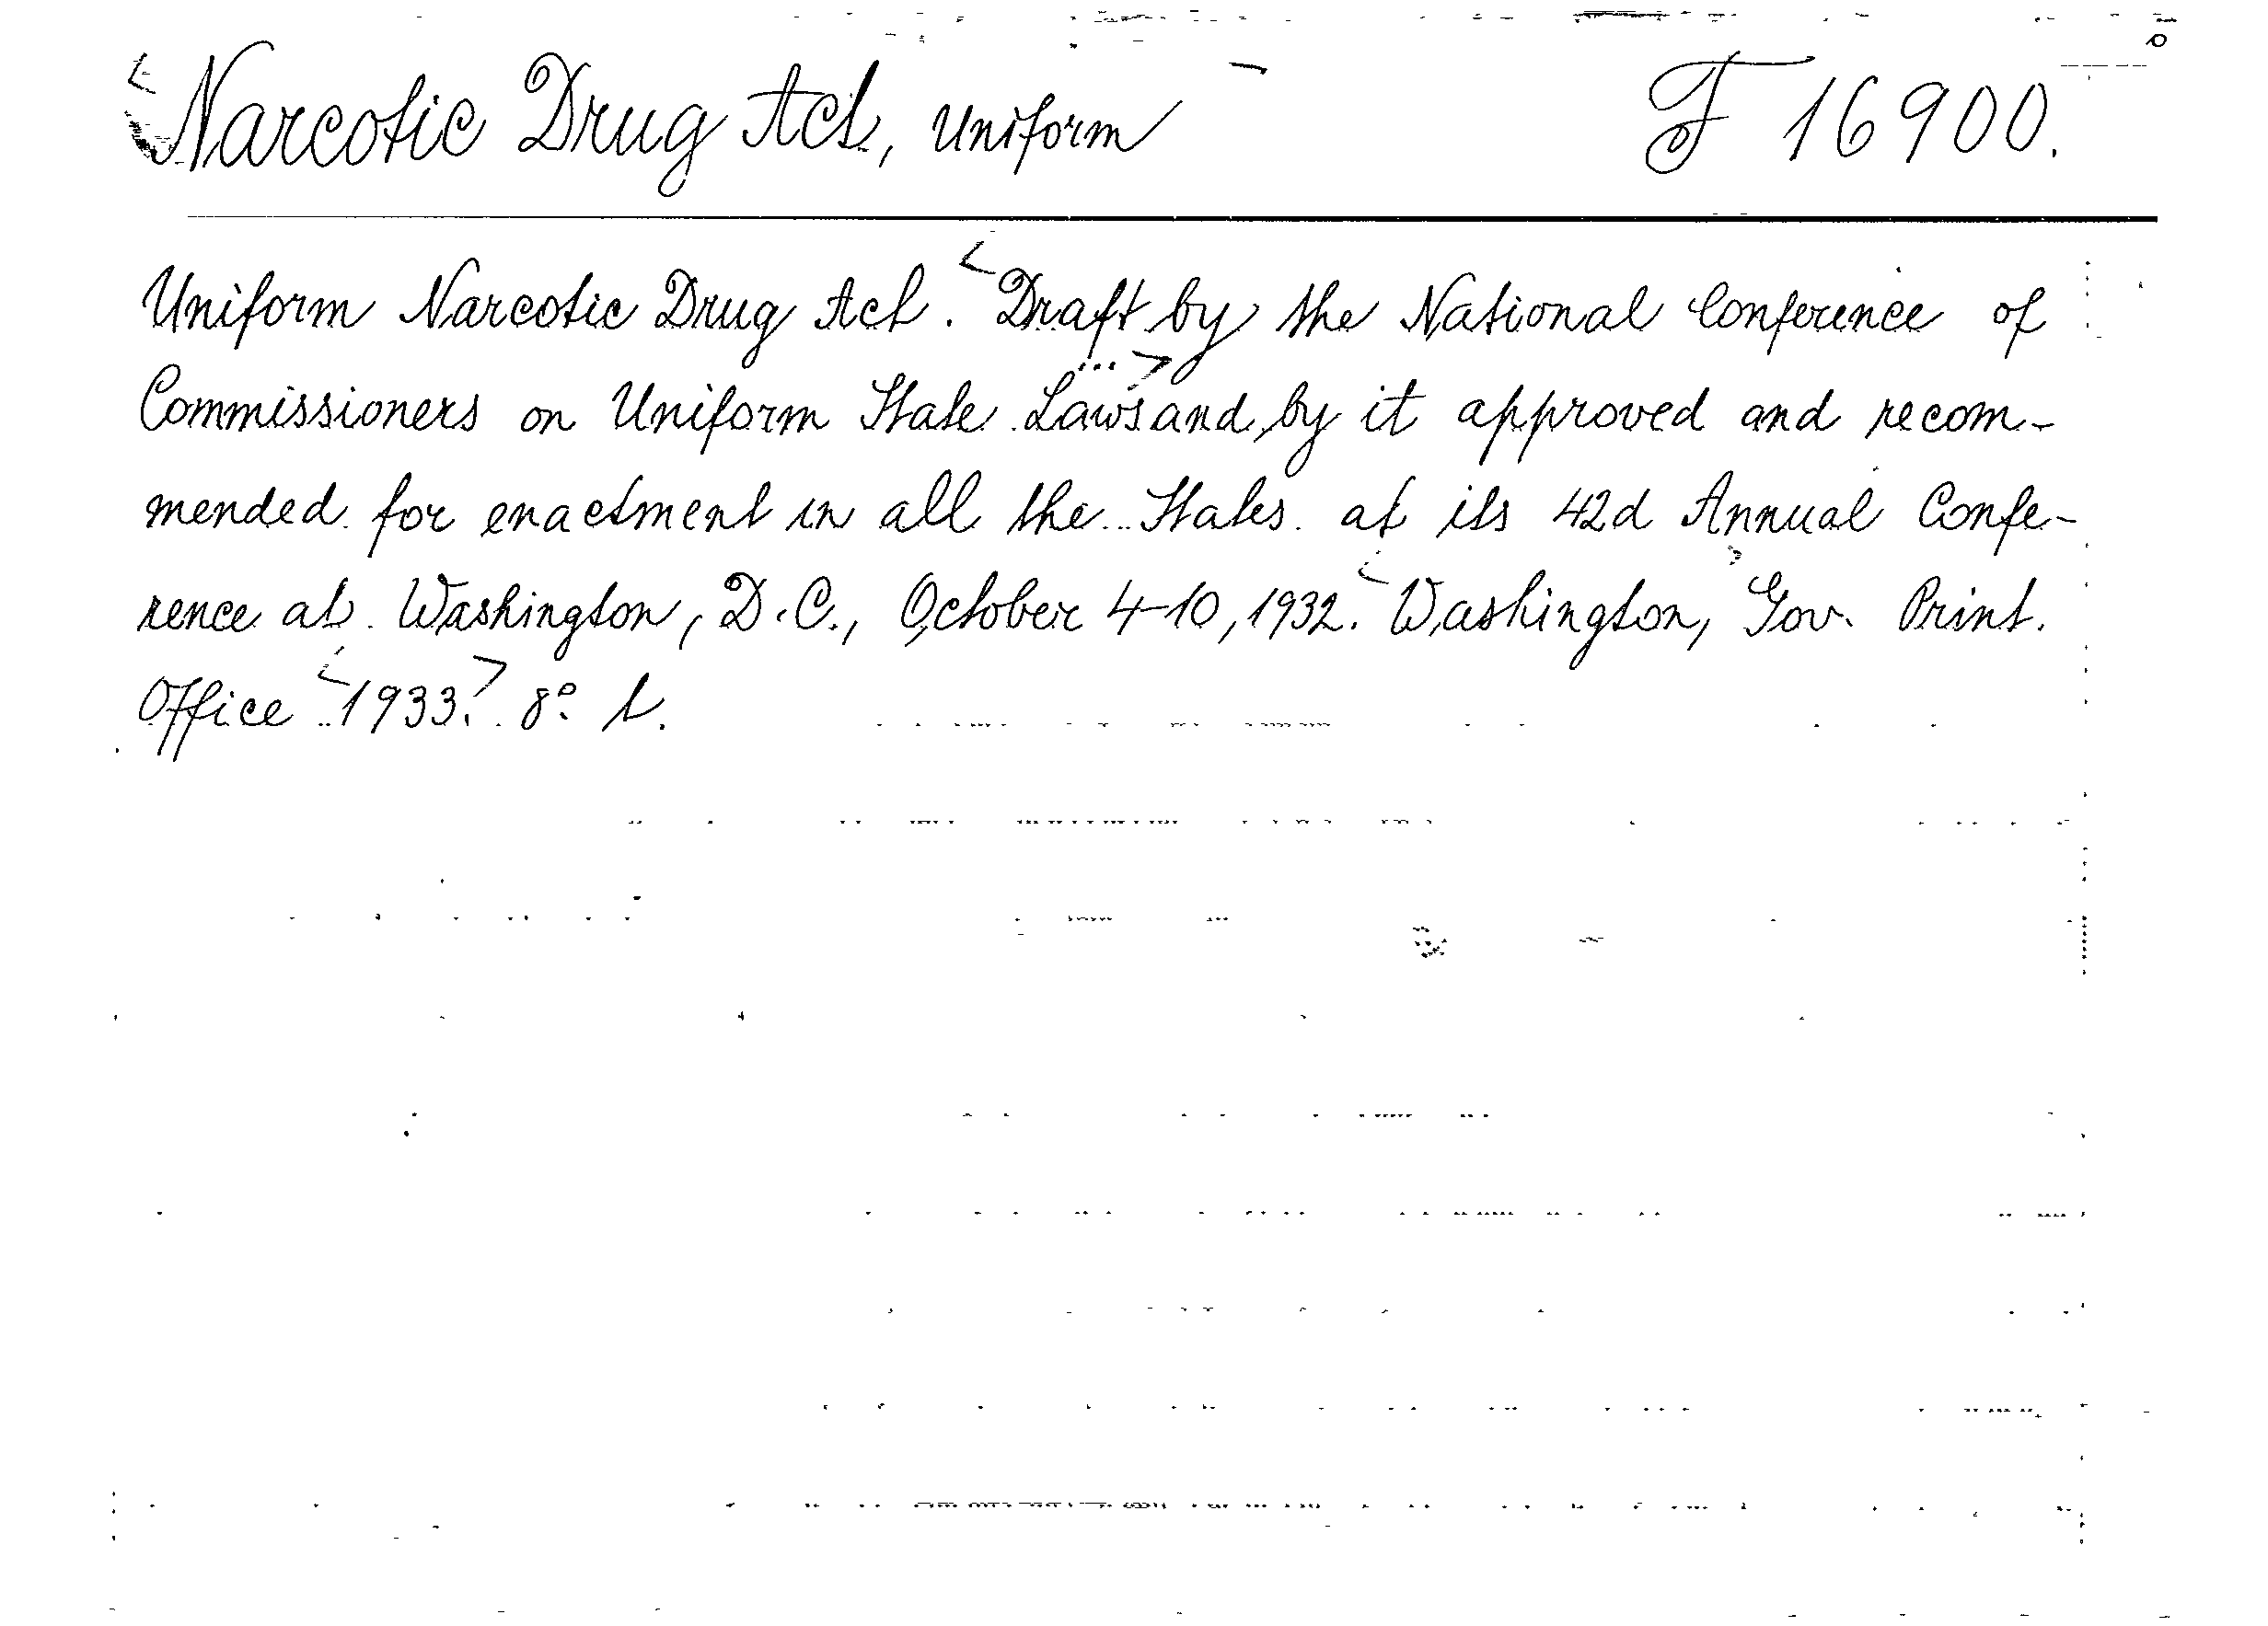 <Narcotic Drug Act, Uniform F 16900.
Uniform Narcotic Drug Act. <Draft by the National Conference of
Commissioners on Uniform State Laws ...> and by it approved and recom-
mended for enactment in all the States at its 42d Annual Confe-
rence at Washington, D.C., October 4-10, 1932. <Washington, > Gov. Print.
Office <1933.> 8°.